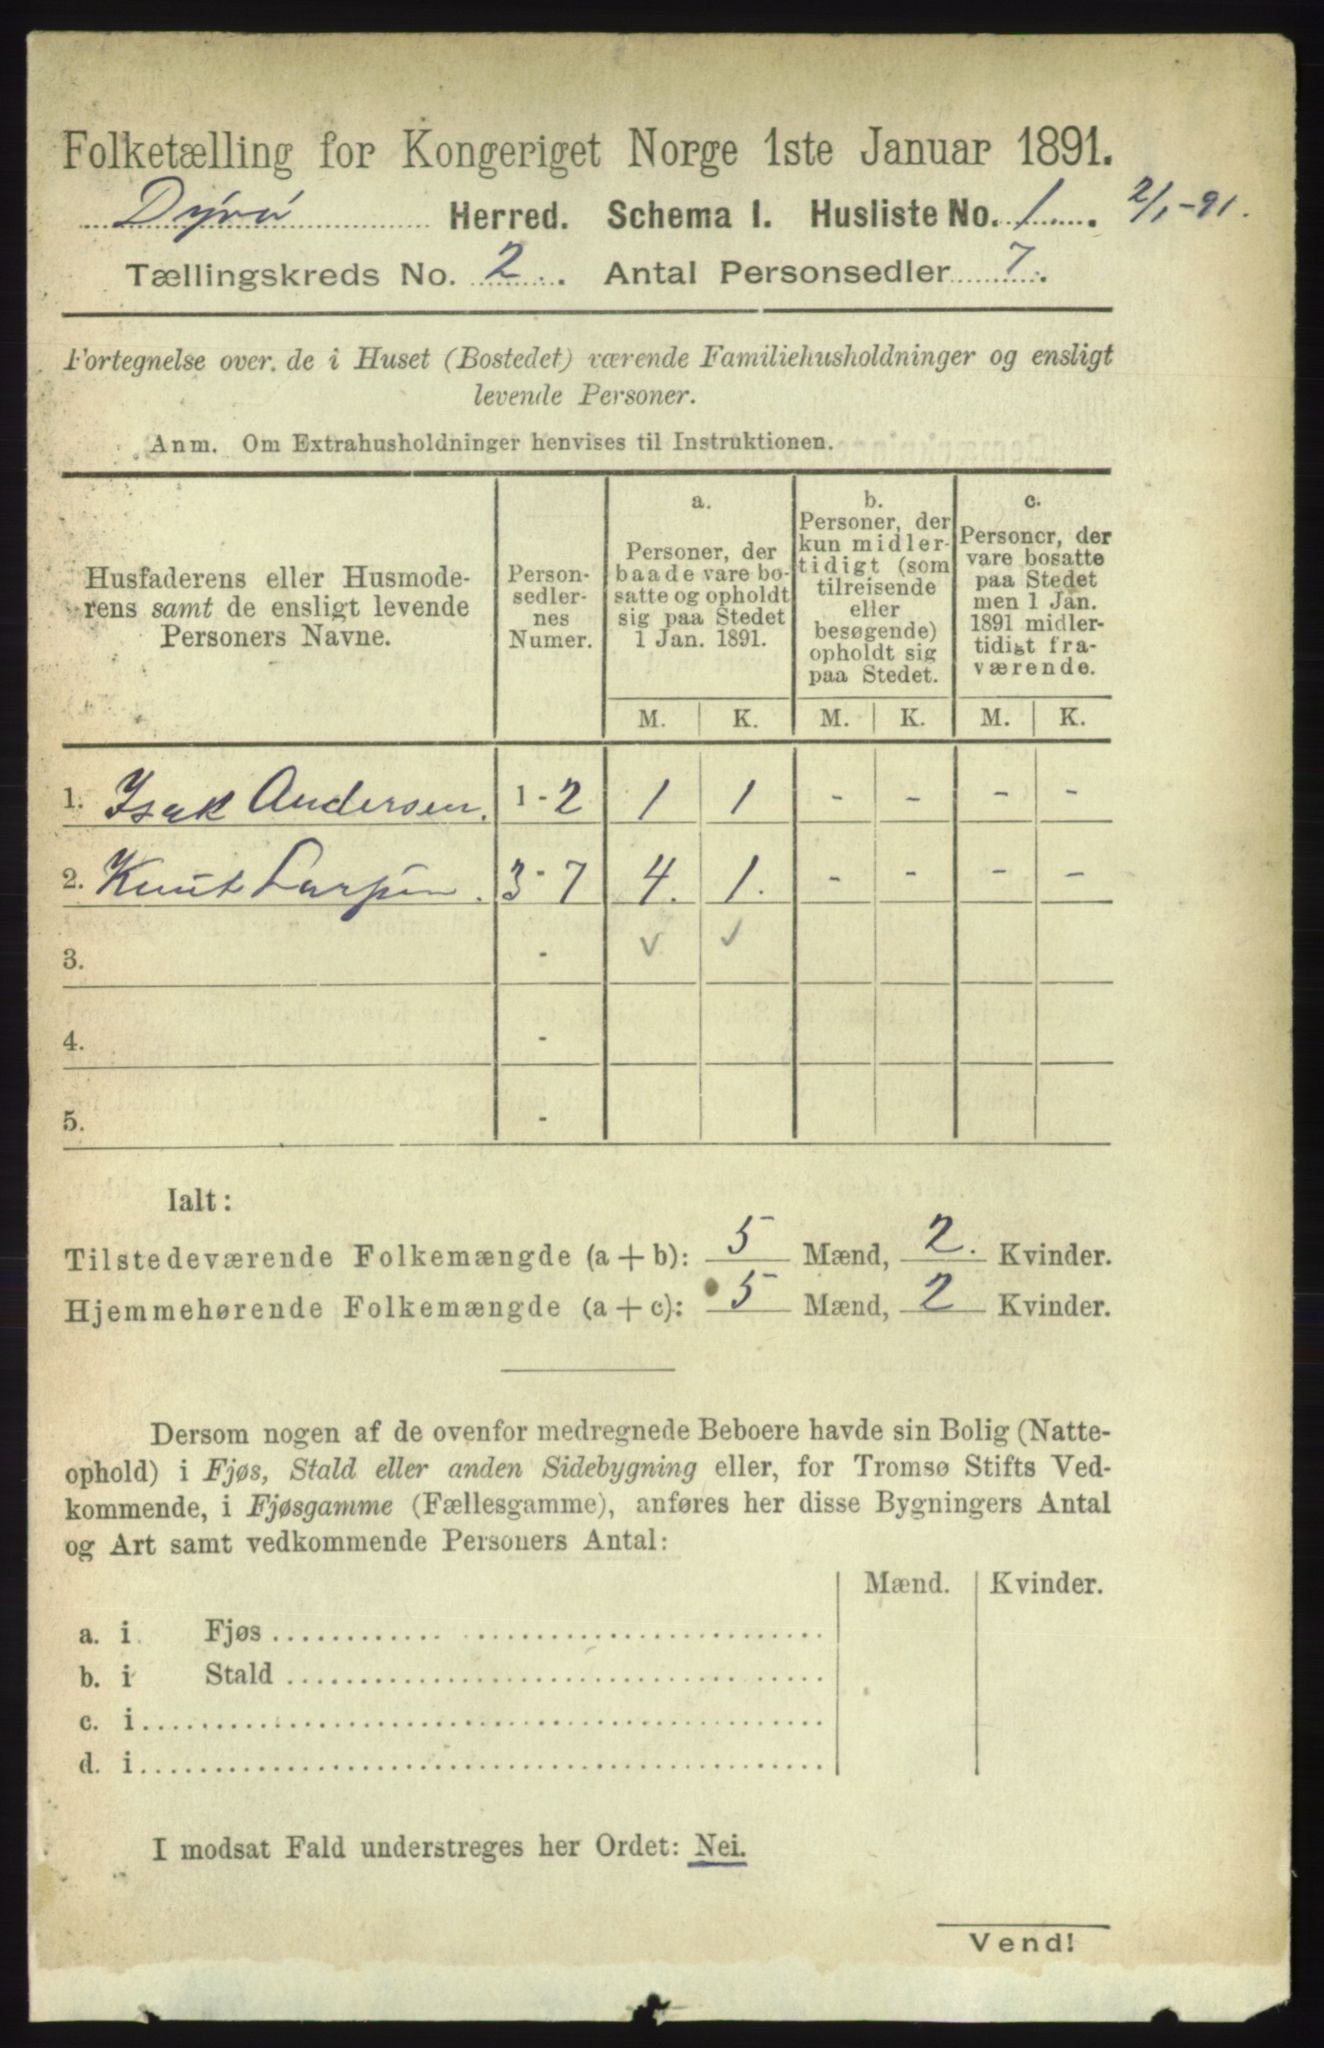 Folketælling for Kongeriget Norge 1ste Januar 1891.
Dyrø Herred. Schema I. Husliste No. 1. 2/1-91.
Tællingskreds No. 2. Antal Personsedler 7.
Fortegnelse over de i Huset (Bostedet) værende Familiehusholdninger og ensligt
levende Personer.
Anm. Om Extrahusholdninger henvises til Instruktionen.
Husfaderens eller Husmode-
rens samt de ensligt levende
Personers Navne.
Person-
sedler-
nes
Numer.
a.
Personer, der
baade vare bo-
satte og opholdt
sig paa Stedet
1 Jan. 1891.
b.
Personer, der
kun midler-
tidigt (som
tilreisende
eller
besøgende)
opholdt sig
paa Stedet.
c.
Personer, der
vare bosatte
paa Stedet
men 1 Jan.
1891 midler-
tidigt fra-
værende.
M. K. M. K. M. K.
1. Isak Andersen. 1-2 1 1 - - - -
2. Knut Larsen. 3-7 4. 1. - - - -
3. - ✓ ✓
4. -
5. -
Ialt:
Tilstedeværende Folkemængde (a + b): 5 Mænd, 2. Kvinder.
Hjemmehørende Folkemængde (a + c): 5 Mænd, 2 Kvinder.
Dersom nogen af de ovenfor medregnede Beboere havde sin Bolig (Natte-
ophold) i Fjøs, Stald eller anden Sidebygning eller, for Tromsø Stifts Ved-
kommende, i Fjøsgamme (Fællesgamme), anføres her disse Bygningers Antal
og Art samt vedkommende Personers Antal:
Mænd. Kvinder.
a. i Fjøs
b. i Stald
c. i
d. i
I modsat Fald understreges her Ordet: Nei.
Vend!